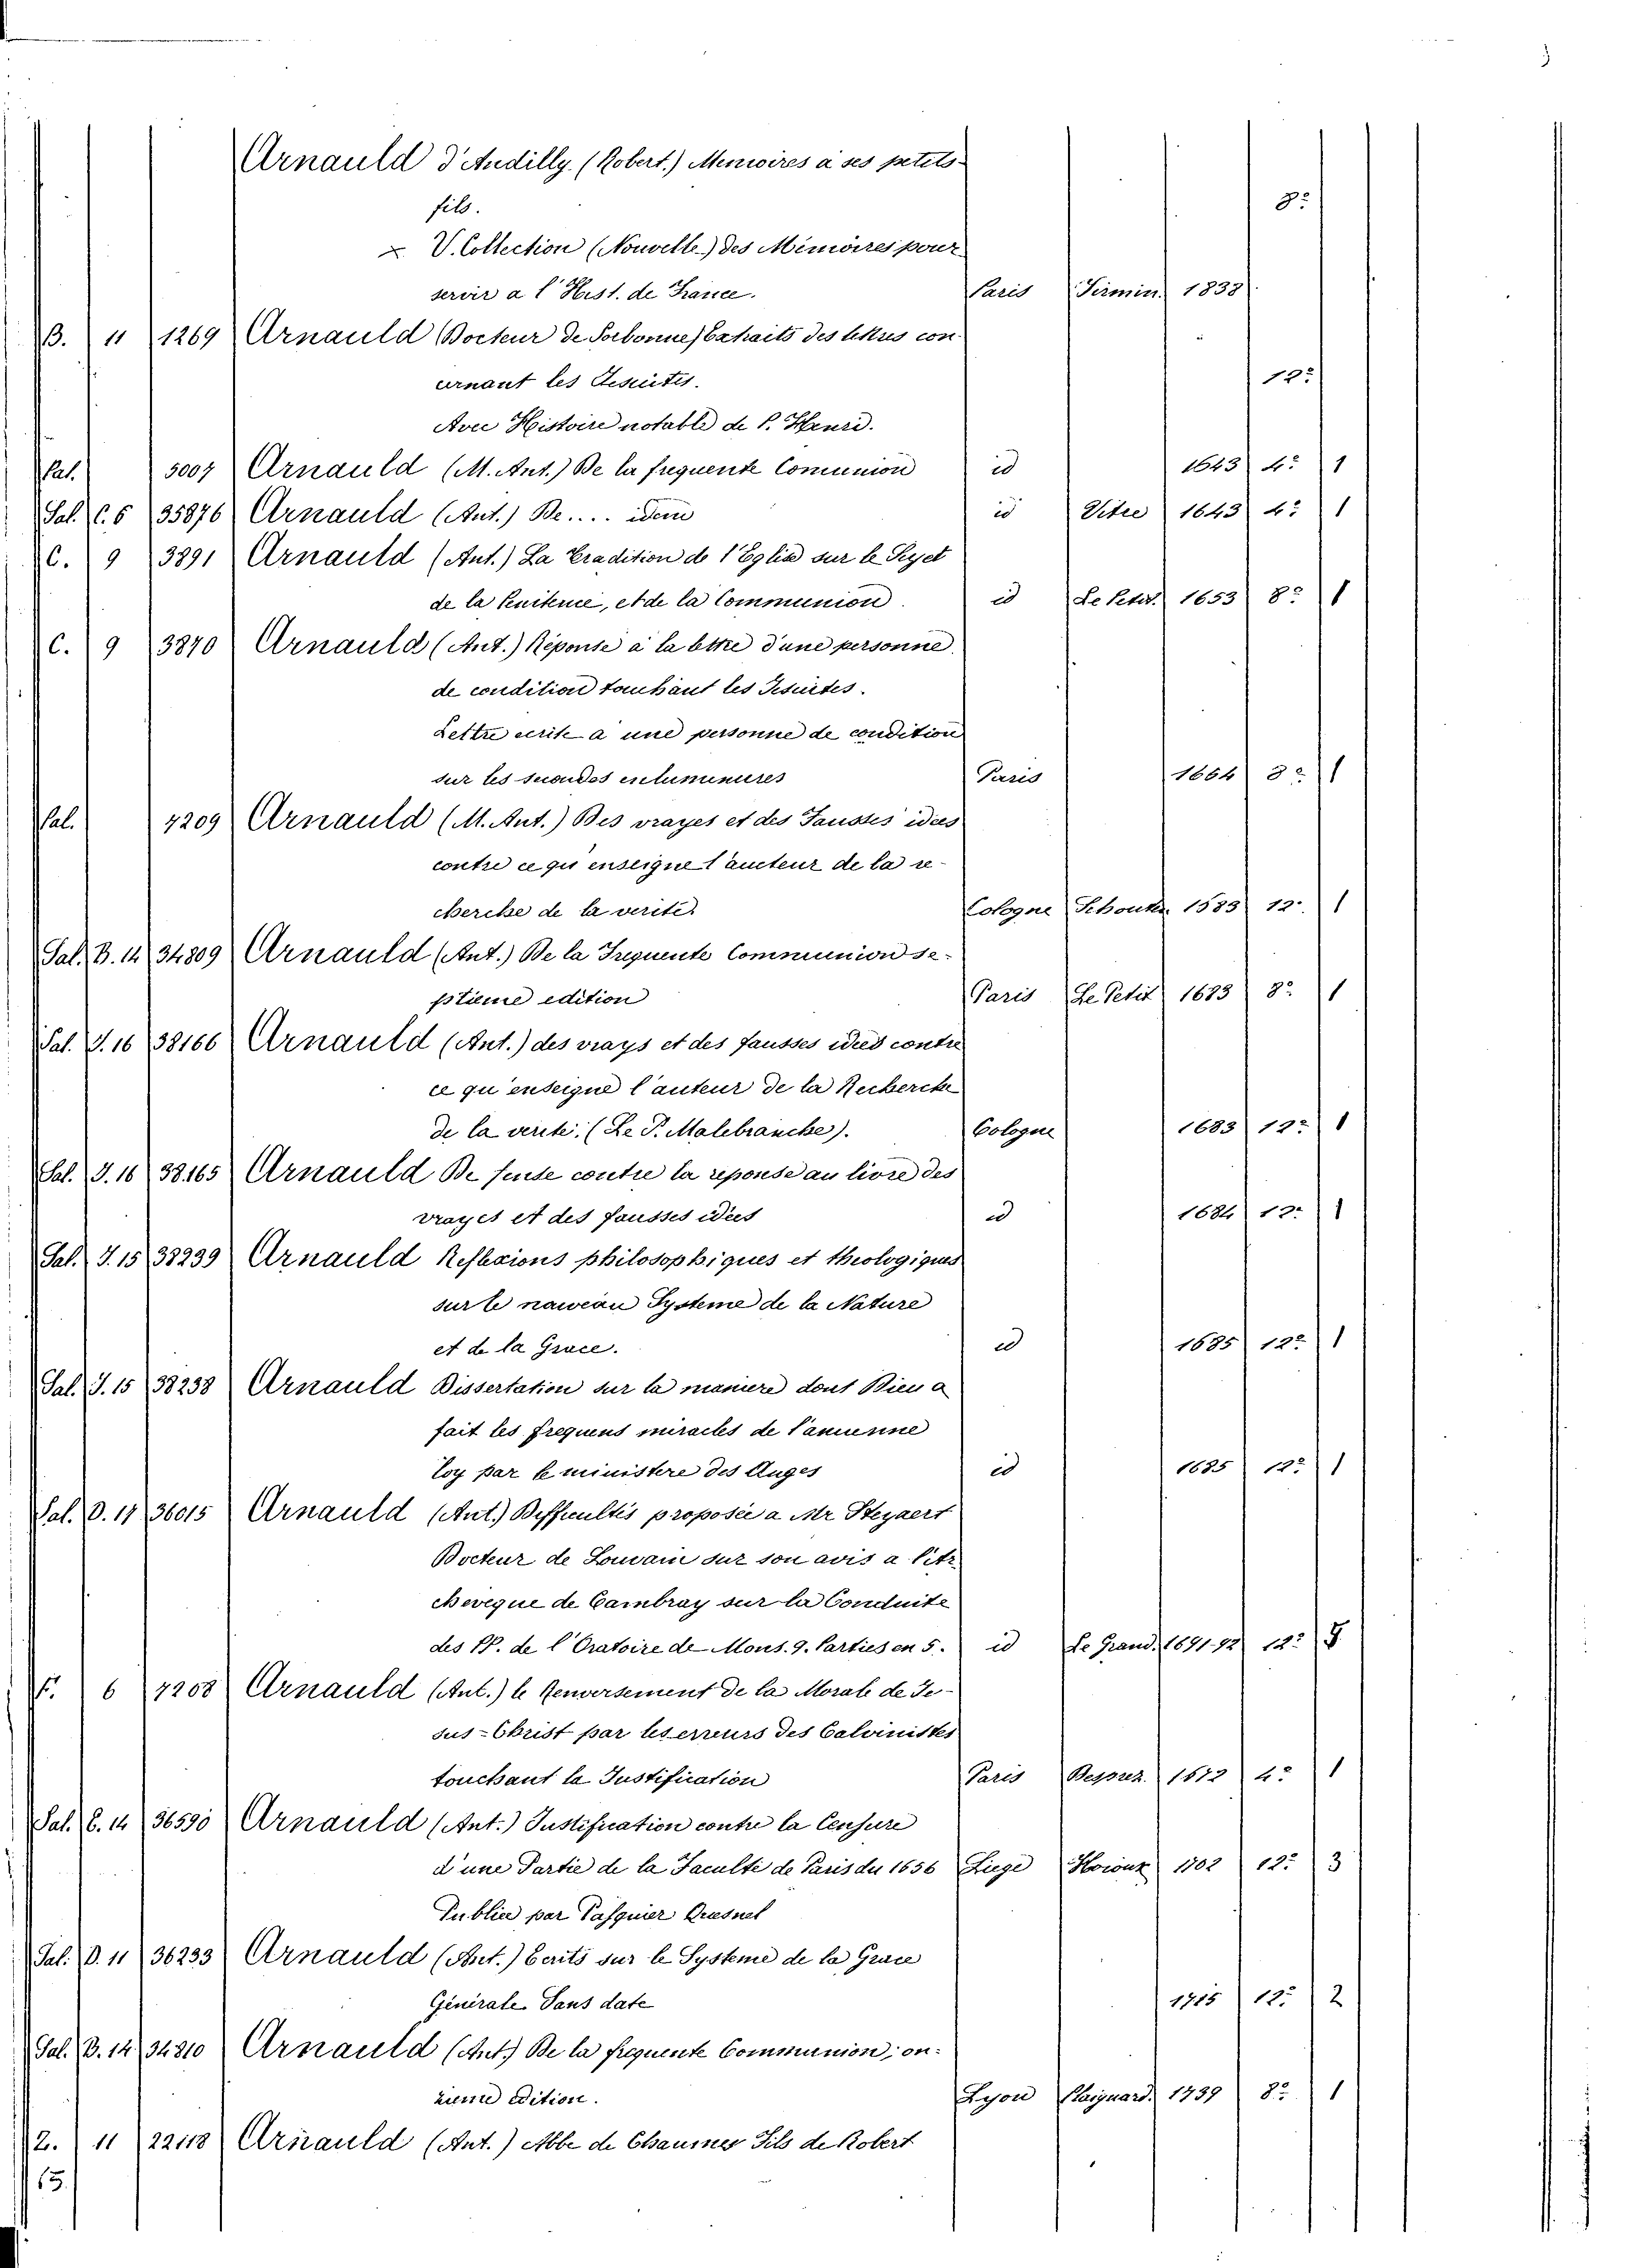 Arnauld d'Andilly. (Robert.) Memoires a ses petits-
fils. 8º
x V. Collection (Nouvelle) des Mémoires pour
servir a l'Hist. de France. Paris Firmin. 1838
B. 11 1269 Arnauld (Docteur de Sorbonne) Extraits des lettres con-
cernant les Jesuites. 12º
Avec Histoire notable de P. Henri.
Pal. 5007 Arnauld (M. Ant.) De la frequente Comunion id 1643 4º 1
Sal. C.5 35876 Arnauld (Ant.) De.... idem id Vitre 1643 4º 1
C. 9 3891 Arnauld (Ant.) La Tradition de l'Eglise sur le Sujet
de la Penitence, et de la Communion. id Le Petit. 1653 8º 1
C. 9 3870 Arnauld (Ant.) Réponse a la lettre d'une personne
de condition touchant les Jesuites.
Lettre ecrite a une personne de condition
sur les secondes enluminures Paris 1664 8º 1
Pal. 4209 Arnauld (M. Ant.) Des vrayes et des Fausses idees
contre ce qu'enseigne l'aucteur de la re-
cherche de la verité. Cologne Schouten 1683 12º 1
Sal. B. 14 34809 Arnauld (Ant.) De la Frequente Communion se-
ptieme edition Paris Le Petit 1683 8º 1
Sal. J. 16 38166 Arnauld (Ant.) des vrays et des fausses idées contre
ce qu'enseigne l'auteur de la Recherche
de la verité. (Le P. Malebranche). Cologne 1683 12º 1
Sal. J. 16 38165 Arnauld De fense contre la reponse au livre des
vrayes et des fausses idées id 1684 12º 1
Sal. J. 15 38239 Arnauld Reflexions philosophiques et theologiques
sur le naweau Systeme de la Nature
et de la Grace. id 1685 12º 1
Sal. J. 15 38238 Arnauld Dissertation sur la maniere dont Dieu a
fait les frequens miracles de l'ancienne
loy par le ministere des Anges id 1685 12º 1
Sal. D. 17 36015 Arnauld (Ant.) Difficultés proposée a Mr Steyaert
Docteur de Louvain sur son avis a l'Ar
cheveque de Cambray sur la Conduite
des PP. de l'Oratoire de Mons. 9. Parties en 5. id Le Grand. 1691-92 12º 5
F. 6 4208 Arnauld (Ant.) le Renversement de la Morale de Je-
sus-Christ par les erreurs des Calvinistes
touchant la Justification Paris Desprez. 1672 4º 1
Sal. E. 14 36590 Arnauld (Ant.) Justification contre la Censure
d'une Partie de la Faculté de Paris du 1656 Liege Hoioux 1702 12º 3
Publiee par Pasquier Quesnel
Sal. D. 11 36233 Arnauld (Ant.) Ecrits sur le Systeme de la Grace
Générale Sans date 1715 12º 2
Sal. B. 14 34810 Arnauld (Ant.) De la frequente Communion; on-
zieme edition. Lyon Plaignard. 1739 8º 1
Z. 11 22118 Arnauld (Ant.) Abbe de Chaumes Fils de Robert
15.